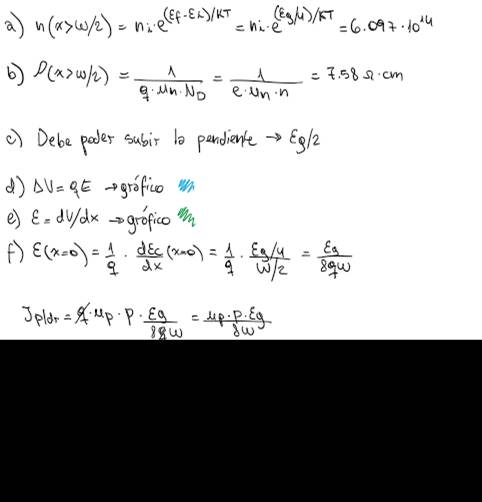 a) n(x>w/2) = ni·e^(Ef-Ei)/KT = ni·e^(Eg/4)/KT = 6.097·10^14
b) ρ(x>w/2) = 1/(q·μn·ND) = 1/(e·μn·n) = 7.58 Ω·cm
c) Debe poder subir la pendiente → Eg/2
d) ΔV = qE → gráfico
e) E = dV/dx → gráfico
f) E(x=0) = 1/q · dEc/dx (x=0) = 1/q · (Eg/4)/(w/2) = Eg/8qw
Jp|dr = q·μp·p·Eg/8qw = μp·p·Eg/8w